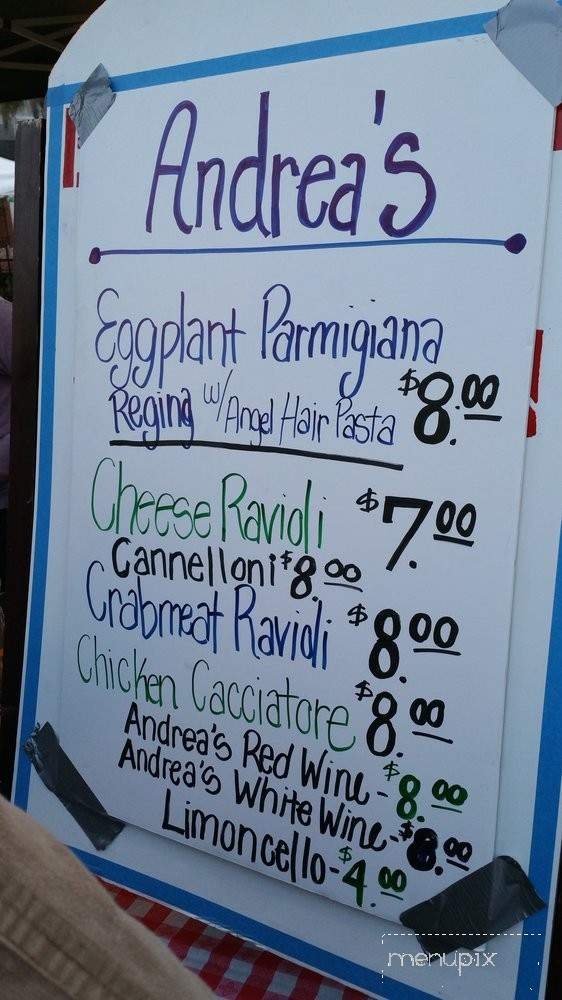 Andrea's
Eggplant Parmigiana
Regina w/Angel Hair Pasta $8.00
Cheese Ravioli $7.00
Cannelloni $8.00
Crabmeat Ravioli $8.00
Chicken Cacciatore $8.00
Andrea's Red Wine - $8.00
Andrea's White Wine - $8.00
Limoncello - $4.00
menupix